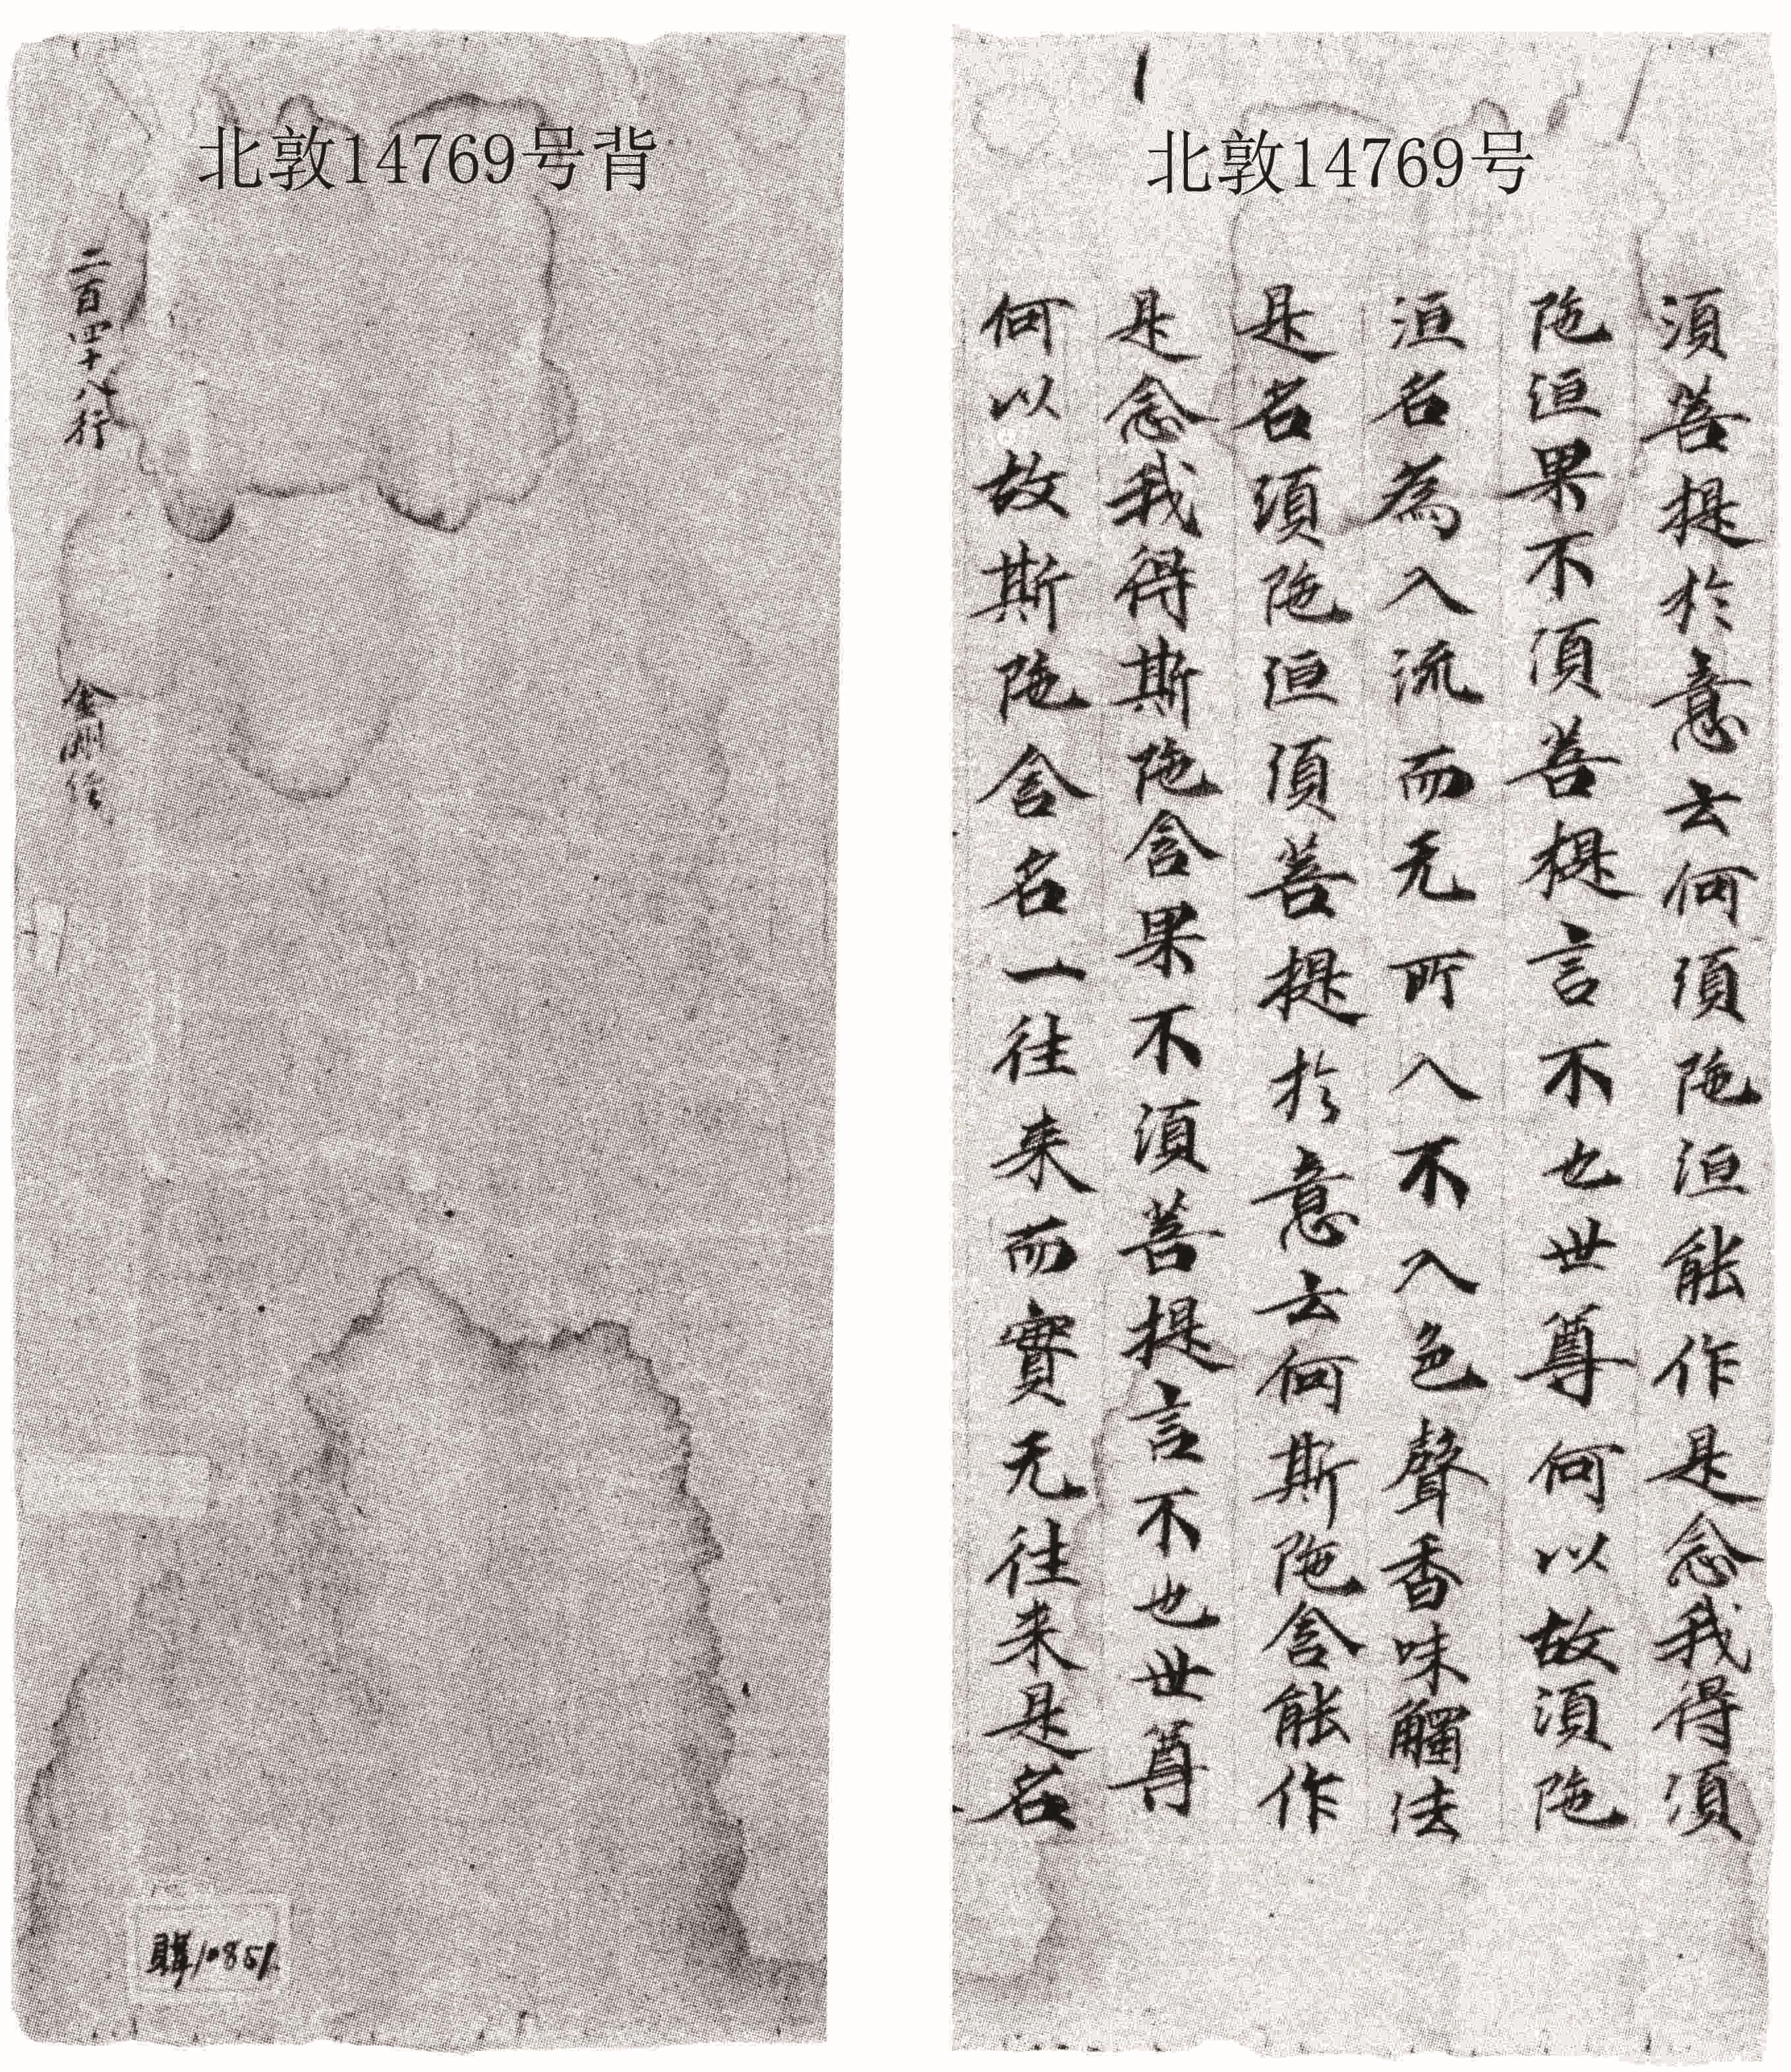 北敦14769号
須菩提於意云何須陁洹能作是念我得須
陁洹果不須菩提言不也世尊何以故須陁
洹名為入流而无所入不入色聲香味觸法
是名須陁洹須菩提於意云何斯陁含能作
是念我得斯陁含果不須菩提言不也世尊
何以故斯陁含名一往来而實无往来是名
北敦14769号背
二百四十八行
金剛經
購10851